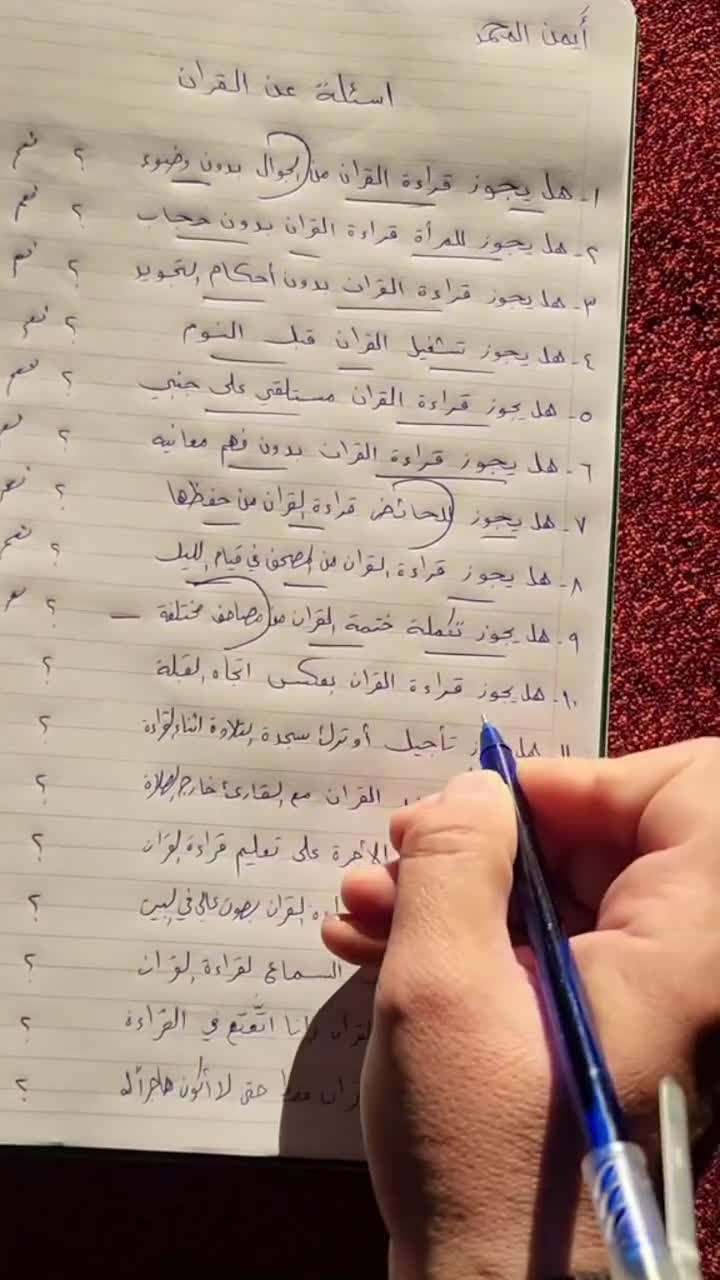 أيمن المحمد
اسئلة عن القران
١- هل يجوز قراءة القران من الجوال بدون وضوء ؟ نعم
٢- هل يجوز للمرأة قراءة القران بدون حجاب ؟ نعم
٣- هل يجوز قراءة القران بدون أحكام التجويد ؟ نعم
٤- هل يجوز تشغيل القران قبل النوم ؟ نعم
٥- هل يجوز قراءة القران مستلقي على جنبي ؟ نعم
٦- هل يجوز قراءة القران بدون فهم معانيه ؟
٧- هل يجوز للحائض قراءة القران من حفظها ؟
٨- هل يجوز قراءة القران من المصحف في قيام الليل ؟ نعم
٩- هل يجوز تكملة ختمة القران من مصاحف مختلفة ؟
١٠- هل يجوز قراءة القران بعكس اتجاه القبلة ؟
١١- هل تأجيل أو ترك سجدة التلاوة اثناء القراءة ؟
القران مع القارئ خارج الصلاة ؟
الأجرة على تعليم قراءة القران ؟
القران بصوت عالي في البيت ؟
السماع لقراءة القران ؟
وانا اتتعتع في القراءة ؟
حتى لا أكون هاجراً له ؟